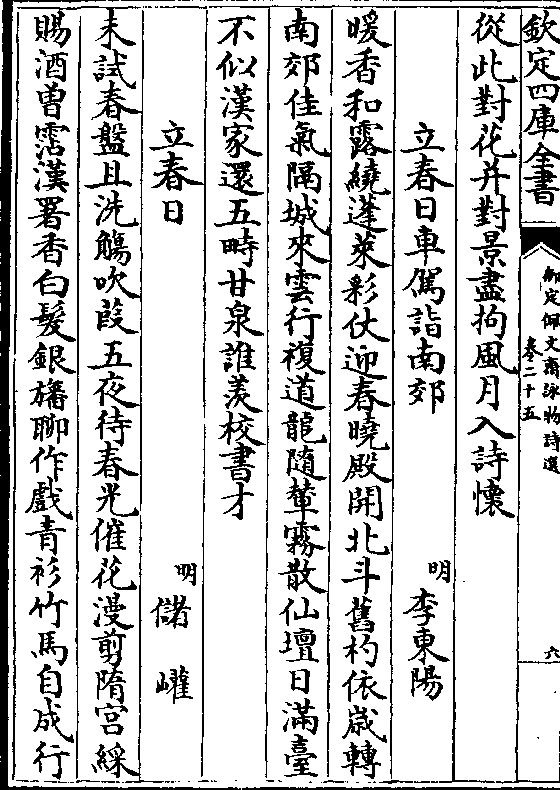 欽定四庫全書
御定佩文齋詠物詩選
卷二十五
六
從此對花并對景盡拘風月入詩懷
立春日車駕詣南郊
明
李東陽
暖香和露繞蓬萊彩仗迎春曉殿開北斗舊杓依歲轉
南郊佳氣隔城來雲行複道龍隨輦霧散仙壇日滿臺
不似漢家還五畤甘泉誰羨校書才
立春日
明
儲巏
未試春盤且洗觴吹葭五夜待春光催花漫剪隋宮綵
賜酒曽霑漢署香白髮銀旛聊作戲青衫竹馬自成行